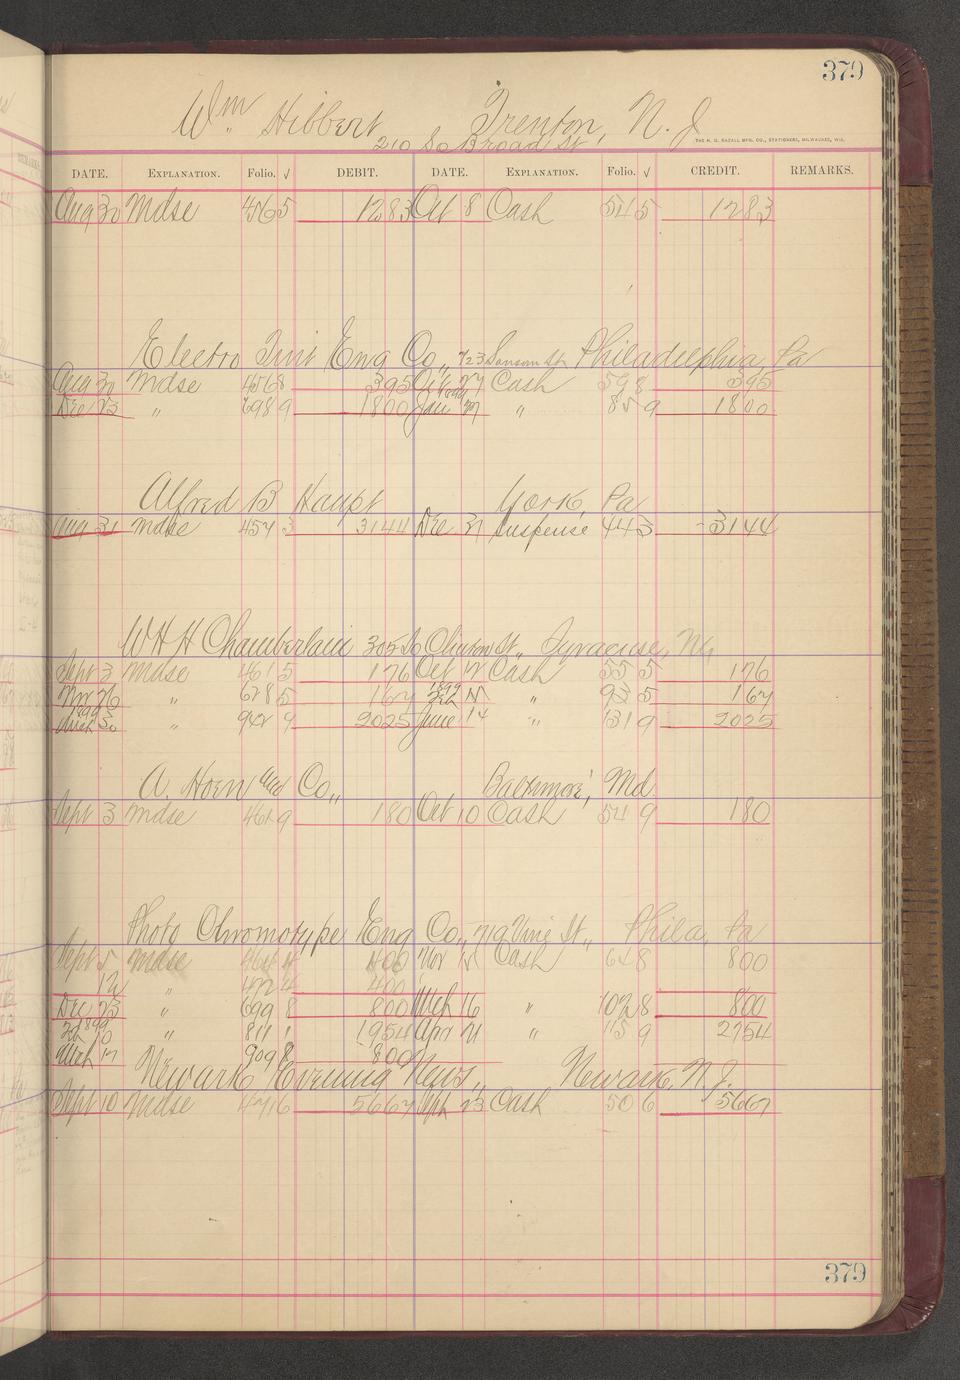 379
Wm Hibbert Trenton, N. J.
210 So Broad St
THE H. G. RAZALL MFG. CO., STATIONERS, MILWAUKEE, WIS.
DATE. EXPLANATION. Folio. √ DEBIT. DATE. EXPLANATION. Folio. √ CREDIT. REMARKS.
Aug 30 Mdse 456 5 1283 Oct 8 Cash 54 5 1283
Electro Tint Eng Co., 723 Sansom St, Philadelphia, Pa
Aug 30 Mdse 456 8 395 Oct 27 Cash 59 8 395
1899
Dec 23 " 698 9 1800 Jan 27 " 85 9 1800
Alfred B Haupt York, Pa
Aug 31 Mdse 457 3 3144 Dec 31 Suspense 443 3144
W H H Chamberlain 305 So Clinton St., Syracuse, NY
Sept 3 Mdse 461 5 176 Oct 12 Cash 55 5 176
1899
Nov 26 " 678 5 167 Feb 15 " 93 5 167
1899
Mich 30 " 942 9 2025 June 14 " 131 9 2025
A. Hoen and Co., Baltimore, Md
Sept 3 Mdse 461 9 180 Oct 10 Cash 54 9 180
Photo Chromotype Eng Co., 719 Vine St., Phila, Pa
Sept 5 Mdse 464 4 400 Nov 15 Cash 64 8 800
12 " 472 4 400
Dec 23 " 699 8 800 Mch 16 " 102 8 800
1899
Feb 10 " 811 1 1954 Apr 21 " 115 9 2754
Mich 17 909 8 800
Newark Evening News., Newark, N. J.
Sept 10 Mdse 471 6 5667 Sept 23 Cash 50 6 5667
379